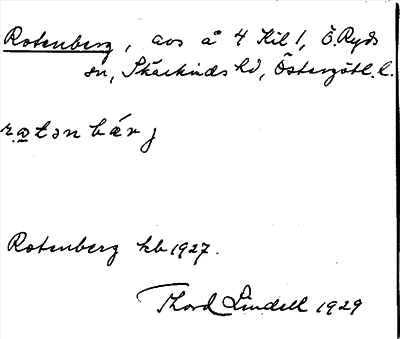 Rotenberg, avs å 4 Kil 1, Ö. Ryds
sn, Skärkinds hd, Östergötl. l.
ratenbärj
Rotenberg kb 1927.
Thord Lindell 1929